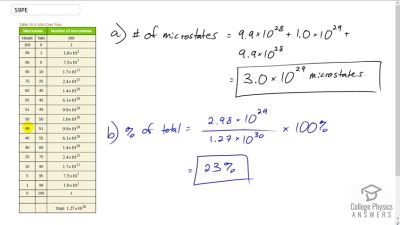 59PE
Table 15.4 100-Coin Toss
Macrostate Number of microstates
Heads Tails (W)
100 0 1
99 1 1.0×10²
95 5 7.5×10⁷
90 10 1.7×10¹³
75 25 2.4×10²³
60 40 1.4×10²⁸
55 45 6.1×10²⁸
51 49 9.9×10²⁸
50 50 1.0×10²⁹
49 51 9.9×10²⁸
45 55 6.1×10²⁸
40 60 1.4×10²⁸
25 75 2.4×10²³
10 90 1.7×10¹³
5 95 7.5×10⁷
1 99 1.0×10²
0 100 1
Total: 1.27×10³⁰
a) # of microstates = 9.9×10²⁸ + 1.0×10²⁹ +
9.9×10²⁸
= 3.0×10²⁹ microstates
b) % of total = 2.98×10²⁹ / 1.27×10³⁰ × 100%
= 23%
College Physics
ANSWERS .com